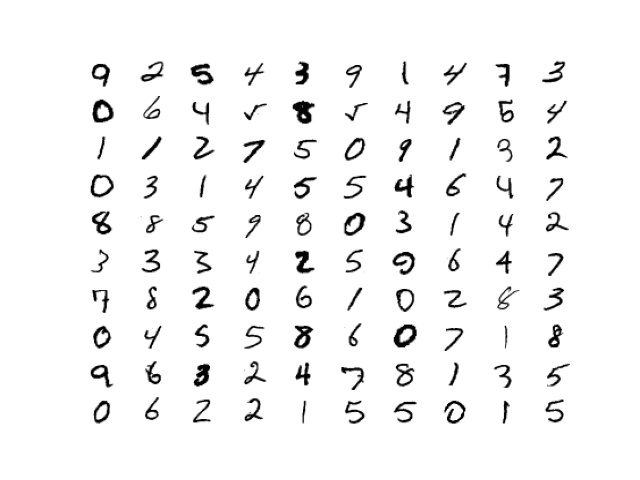 9 2 5 4 3 9 1 4 7 3
0 6 4 5 8 5 4 9 5 4
1 1 2 7 5 0 9 1 3 2
0 3 1 4 5 5 4 6 4 7
8 8 5 9 8 0 3 1 4 2
3 3 3 4 2 5 9 6 4 7
7 8 2 0 6 1 0 2 8 3
0 4 5 5 8 6 0 7 1 8
9 6 3 2 4 7 8 1 3 5
0 6 2 2 1 5 5 0 1 5